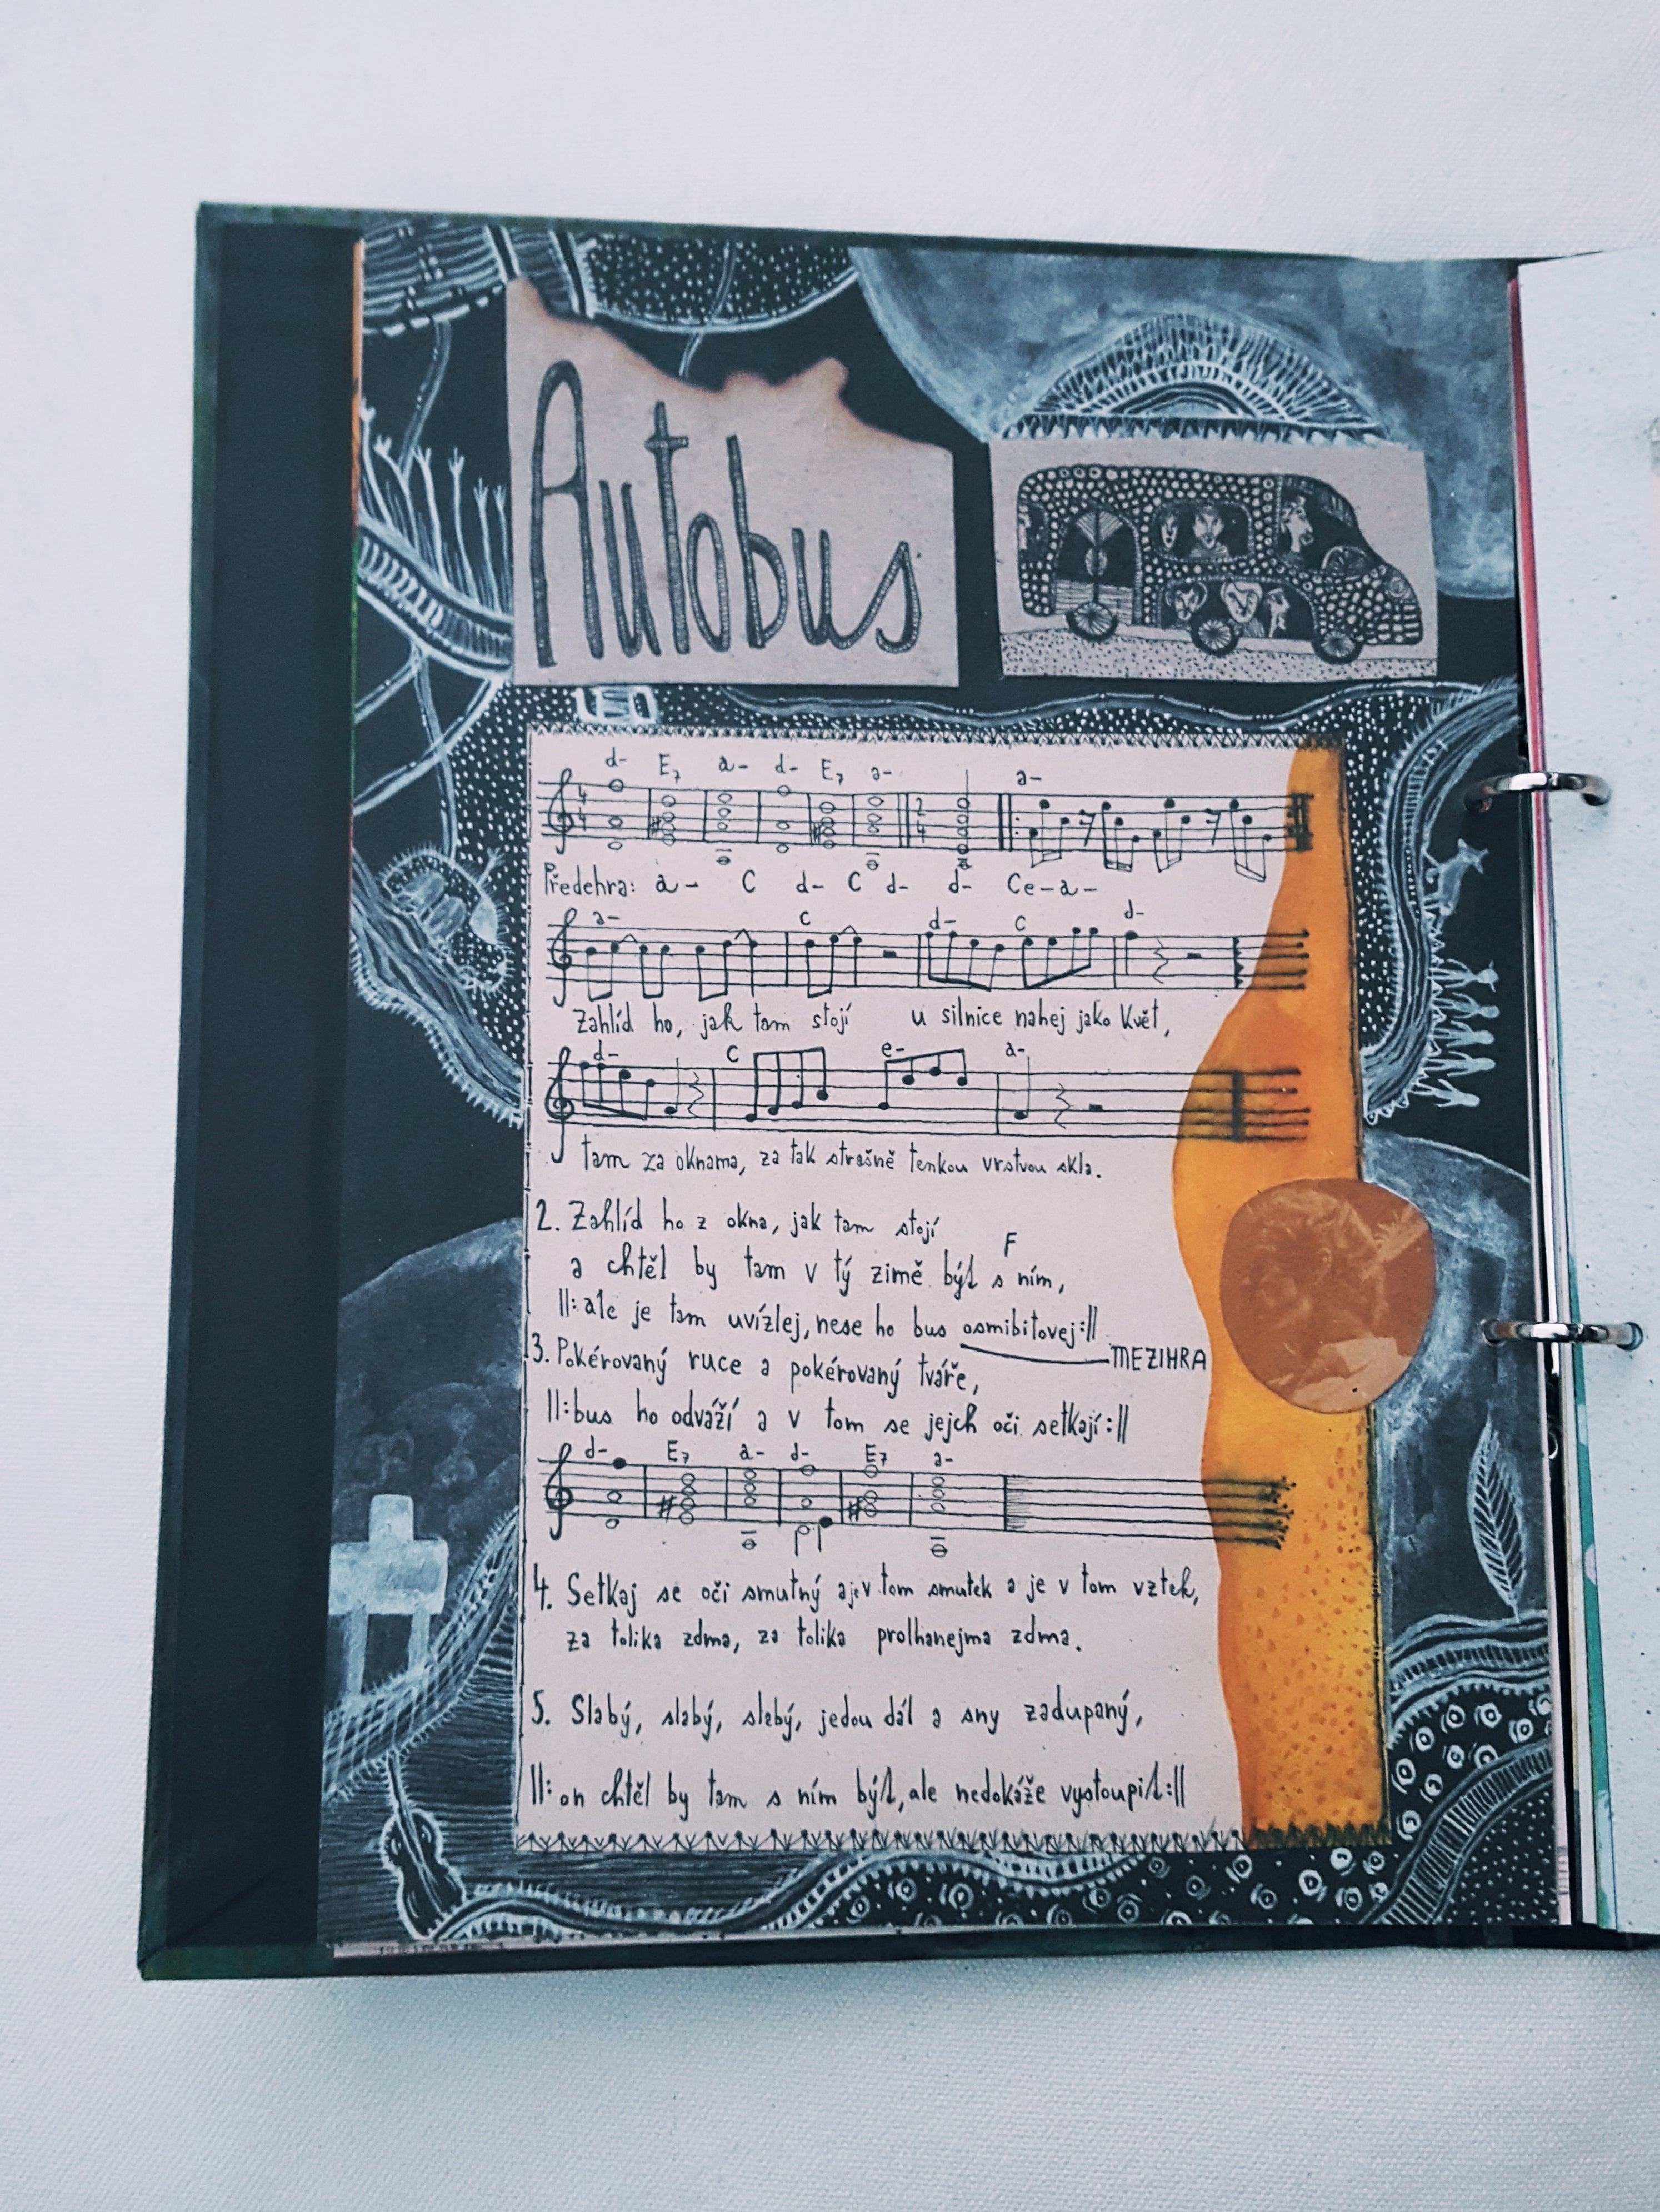 Autobus
d- E7 a- d- E7 a- a-
4 4 2 4
Předehra: a- C d- C d- d- Ce-a-
a- C d- C d-
Zahlíd ho, jak tam stojí u silnice nahej jako květ,
d- C e- a-
tam za oknama, za tak strašně tenkou vrstvou skla.
2. Zahlíd ho z okna, jak tam stojí
F
a chtěl by tam v tý zimě být s ním,
||: ale je tam uvízlej, nese ho bus osmibitovej :||
MEZIHRA
3. Pokérovaný ruce a pokérovaný tváře,
||: bus ho odváží a v tom se jejch oči setkají :||
d- E7 a- d- E7 a-
4. Setkaj se oči smutný a je v tom smutek a je v tom vztek,
za tolika zdma, za tolika prolhanejma zdma.
5. Slabý, slabý, slabý, jedou dál a sny zadupaný,
||: on chtěl by tam s ním být, ale nedokáže vystoupit :||